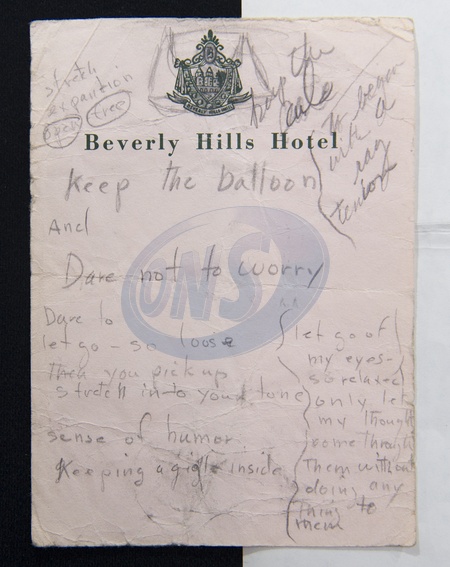 expantion
Beverly Hills Hotel
the
with a
Keep the balloon
And
Dare not to worry
ONS
Dare to
let go - so loose
Then you pick up
stretch into your tone
sense of humor
Keeping a gigle inside
let go of
my eyes-
so relaxed
only let
my thought
come through
Them without
doing any
thing to
them